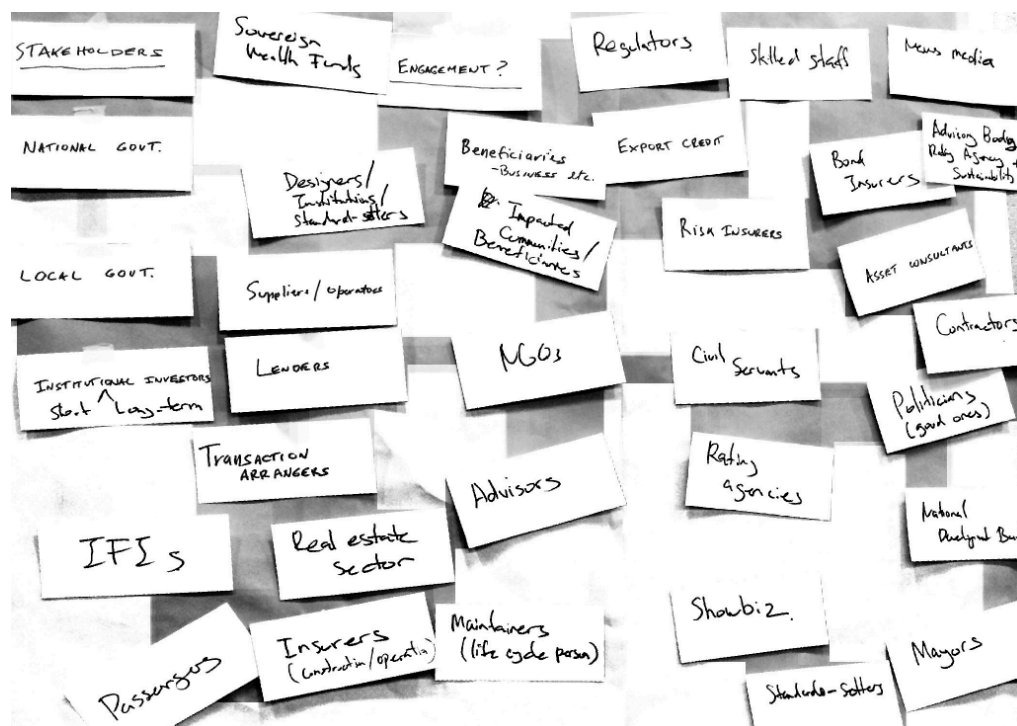 STAKEHOLDERS
Sovereign
Wealth Funds
ENGAGEMENT?
Regulators
Skilled staff
News media
NATIONAL GOVT.
Designers/
Institutions/
Standard-setters
Beneficiaries
-BUSINESS etc.
Impacted
Communities/
Beneficiaries
EXPORT CREDIT
Bond
Insurers
Advisory Bodies
Rating Agency +
Sustainability
RISK INSURERS
ASSET CONSULTANTS
LOCAL GOVT.
Suppliers/operators
Contractors
INSTITUTIONAL INVESTORS
Short Long-term
LENDERS
NGOs
Civil
Servants
Politicians
(good ones)
TRANSACTION
ARRANGERS
Advisors
Rating
agencies
National
IFIs
Real estate
sector
Showbiz.
Passengers
Insurers
(construction/operation)
Maintainers
(life cycle person)
Standards-setters
Mayors